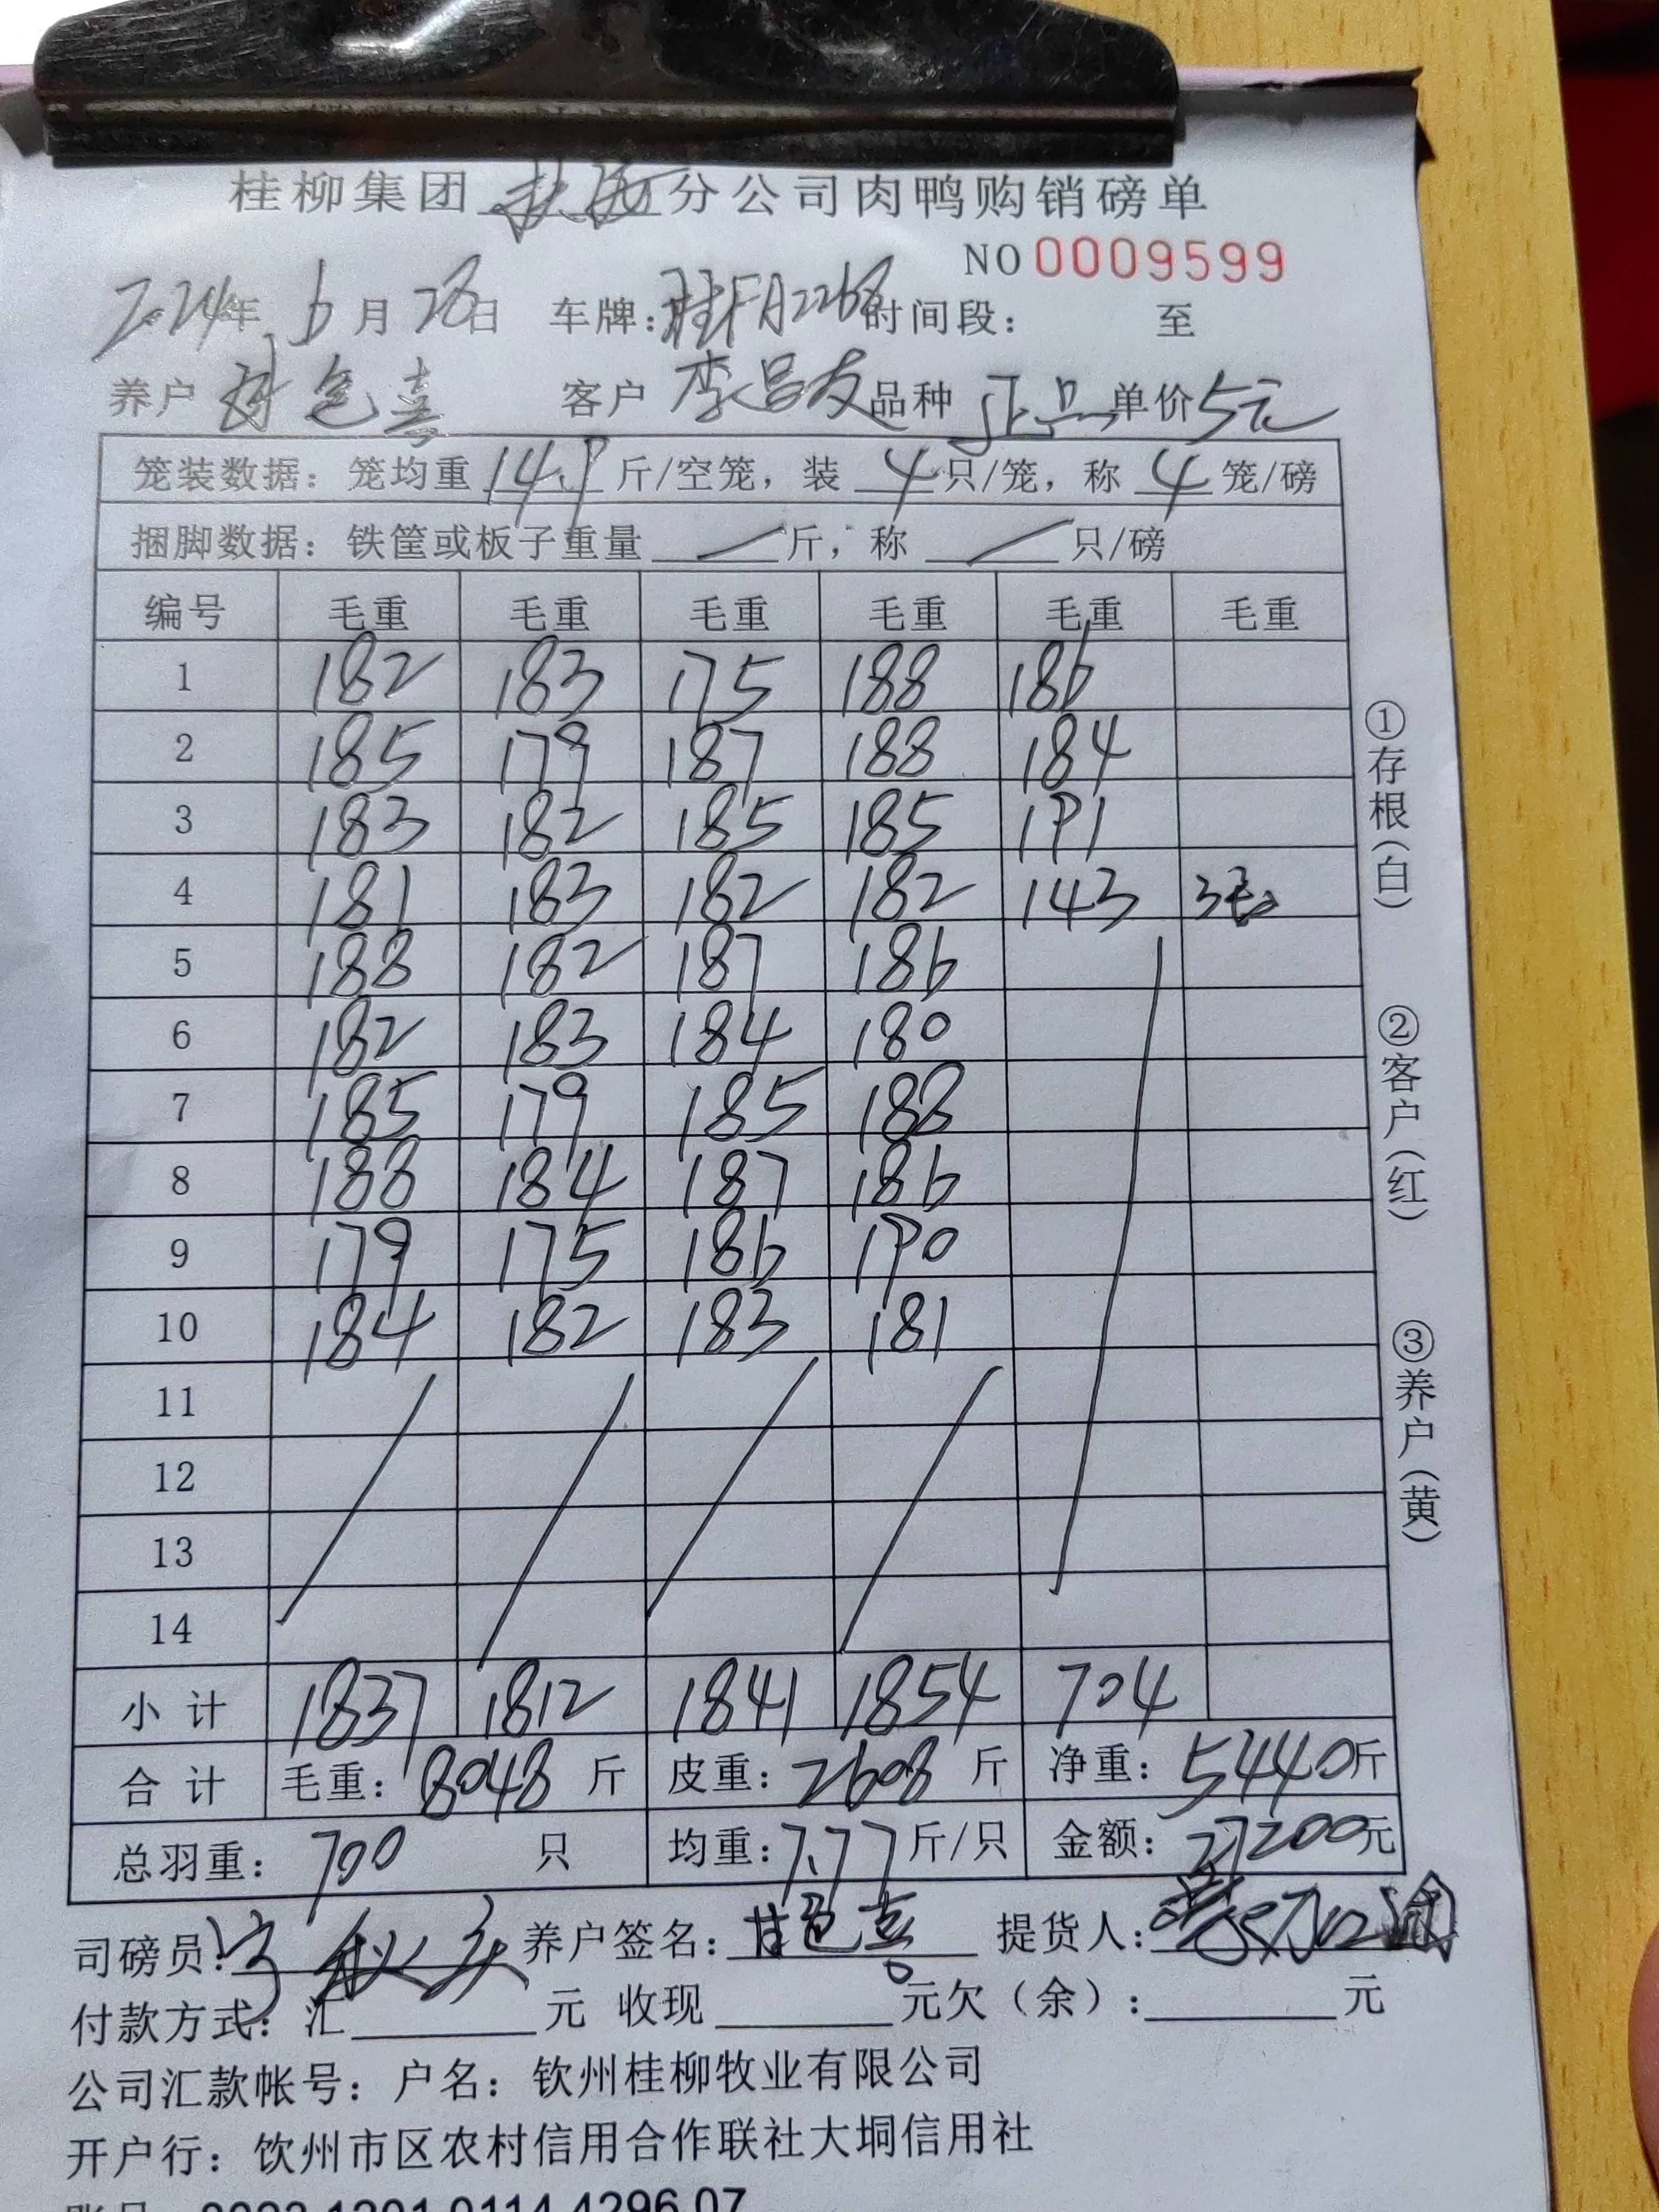 桂柳集团 分公司肉鸭购销磅单
NO 0009599
2024年 6月 28日 车牌：桂FA2268 时间段： 至
养户 色喜 客户 李昌友 品种 正品 单价 5元
笼装数据：笼均重 14.9 斤/空笼，装 4 只/笼，称 4 笼/磅
捆脚数据：铁筐或板子重量 / 斤，称 / 只/磅
编号 毛重 毛重 毛重 毛重 毛重 毛重
1 182 183 175 188 186
2 185 179 187 188 184
3 183 182 185 185 191
4 181 183 182 182 143 3笼
5 188 182 187 186
6 182 183 184 180
7 185 179 185 188
8 188 184 187 186
9 179 175 186 190
10 184 182 183 181
11
12
13
14
小计 1837 1812 1841 1854 704
合计 毛重：8048 斤 皮重：2608 斤 净重：5440斤
总羽重：700 只 均重：7.77 斤/只 金额：27200元
司磅员： 养户签名：甘色喜 提货人：
付款方式：汇 元 收现 元欠（余）： 元
公司汇款帐号：户名：钦州桂柳牧业有限公司
开户行：饮州市区农村信用合作联社大垌信用社
①存根（白）
②客户（红）
③养户（黄）